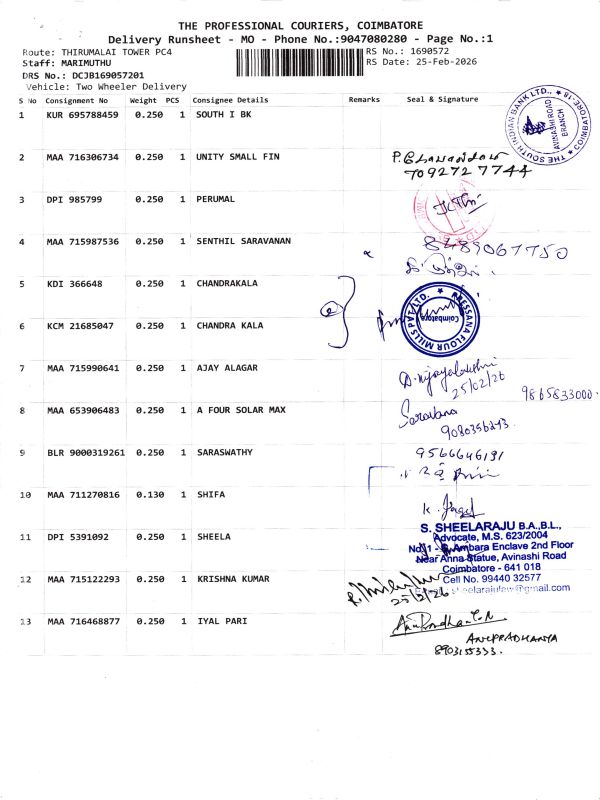 THE PROFESSIONAL COURIERS, COIMBATORE
Delivery Runsheet - MO - Phone No.:9047080280 - Page No.:1
Route: THIRUMALAI TOWER PC4 RS No.: 1690572
Staff: MARIMUTHU RS Date: 25-Feb-2026
DRS No.: DCJB169057201
Vehicle: Two Wheeler Delivery
S No Consignment No Weight PCS Consignee Details Remarks Seal & Signature
1 KUR 695788459 0.250 1 SOUTH I BK
THE SOUTH INDIAN BANK LTD., COIMBATORE-18
AVINASHI ROAD BRANCH
2 MAA 716306734 0.250 1 UNITY SMALL FIN
7092727744
3 DPI 985799 0.250 1 PERUMAL
4 MAA 715987536 0.250 1 SENTHIL SARAVANAN
8489067750
5 KDI 366648 0.250 1 CHANDRAKALA
PRESSANA FLOUR MILLS PVT LTD.
Coimbatore
6 KCM 21685047 0.250 1 CHANDRA KALA
7 MAA 715990641 0.250 1 AJAY ALAGAR
D. Vijayalakshmi
25/02/26
9865833000.
8 MAA 653906483 0.250 1 A FOUR SOLAR MAX
Saravana
9 BLR 9000319261 0.250 1 SARASWATHY
9566646191
10 MAA 711270816 0.130 1 SHIFA
11 DPI 5391092 0.250 1 SHEELA
S. SHEELARAJU B.A.,B.L.,
Advocate, M.S. 623/2004
Ambara Enclave 2nd Floor
Near Anna Statue, Avinashi Road
Coimbatore - 641 018
Cell No. 99440 32577
sheelarajulaw@gmail.com
12 MAA 715122293 0.250 1 KRISHNA KUMAR
25/2/26
13 MAA 716468877 0.250 1 IYAL PARI
ANUPRADHANYA
8903155333.